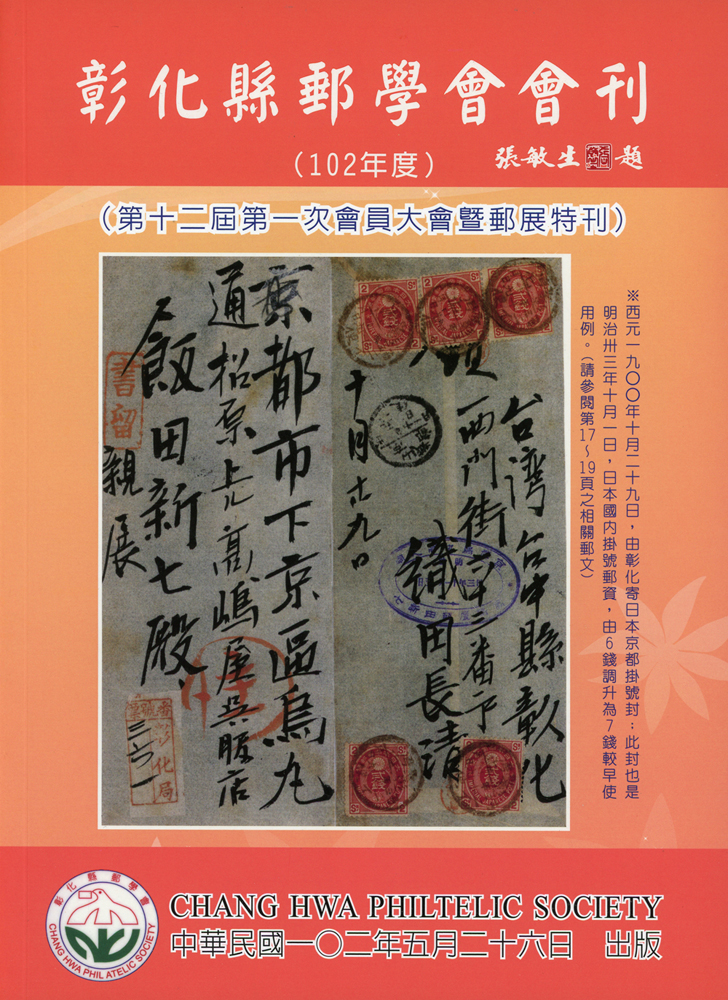 彰化縣郵學會會刊
(102年度)
張敏生 題
(第十二屆第一次會員大會暨郵展特刊)
※西元一九〇〇年十月二十九日，由彰化寄日本京都掛號封；此封也是
明治卅三年十月一日，日本國內掛號郵資，由6錢調升為7錢較早使
用例。(請參閱第17~19頁之相關郵文)
台湾台中縣彰化
西門街六十三番戶
織田長清
十月廿九日
京都市下京區烏丸
通松原上ル高嶋屋呉服店
飯田新七殿
親展
書留
彰化局
三六一
2 Sn
2 Sn
2 Sn
彰化縣郵學會
CHANG HWA PHIL ATELIC SOCIETY
CHANG HWA PHILTELIC SOCIETY
中華民國一〇二年五月二十六日 出版